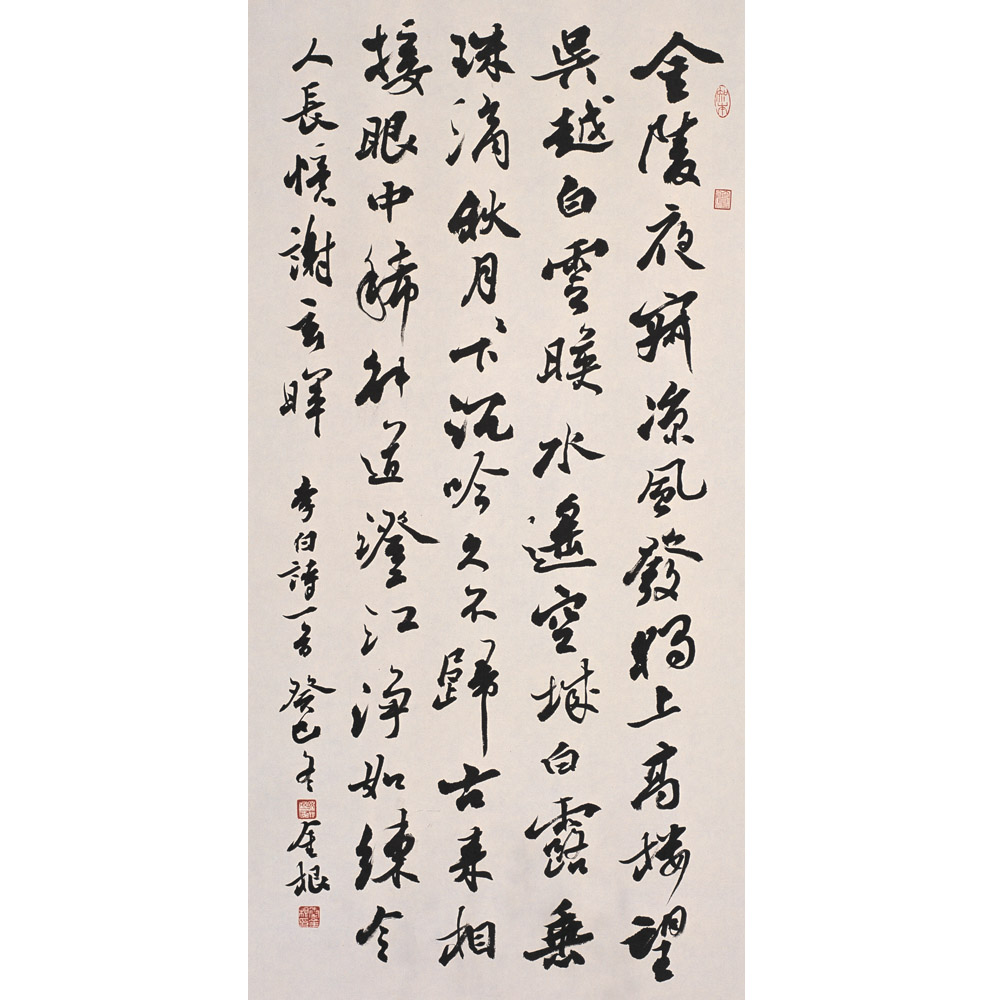 金陵夜寂凉風發獨上高樓望
吳越白雲暎水遙空城白露垂
珠滴秋月々下沉吟久不歸古來相
接眼中稀解道澄江淨如練令
人長憶謝玄暉 李白詩一首 癸巳冬 金根